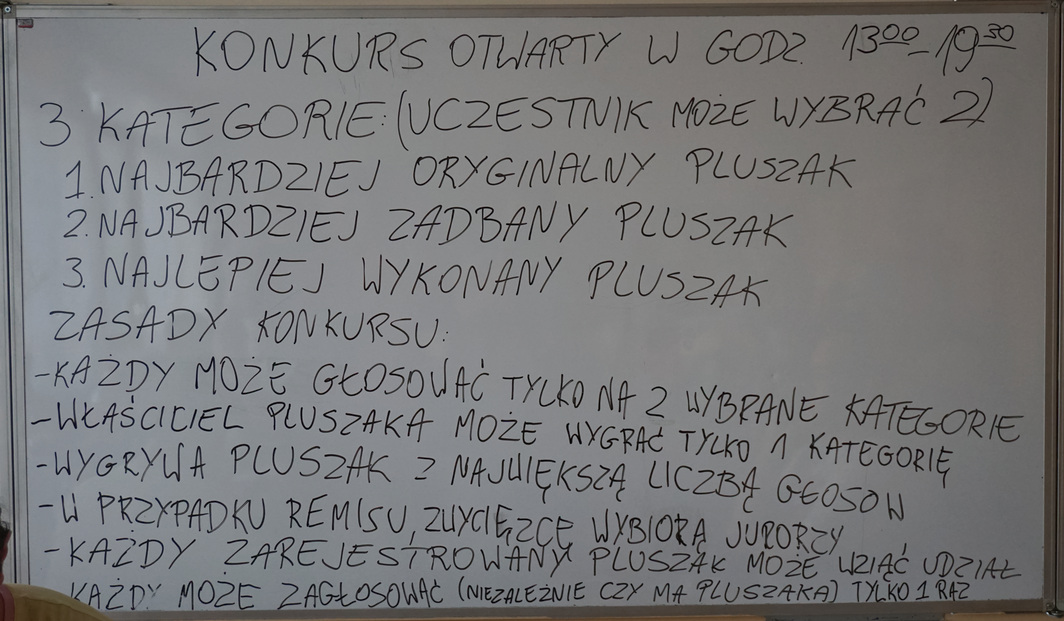 KONKURS OTWARTY W GODZ. 13⁰⁰-19³⁰
3 KATEGORIE: (UCZESTNIK MOŻE WYBRAĆ 2)
1. NAJBARDZIEJ ORYGINALNY PLUSZAK
2. NAJBARDZIEJ ZADBANY PLUSZAK
3. NAJLEPIEJ WYKONANY PLUSZAK
ZASADY KONKURSU:
-KAŻDY MOŻE GŁOSOWAĆ TYLKO NA 2 WYBRANE KATEGORIE
-WŁAŚCICIEL PLUSZAKA MOŻE WYGRAĆ TYLKO 1 KATEGORIĘ
-WYGRYWA PLUSZAK Z NAJWIĘKSZĄ LICZBĄ GŁOSOW
-W PRZYPADKU REMISU, ZWYCIĘZCĘ WYBIORĄ JURORZY
-KAŻDY ZAREJESTROWANY PLUSZAK MOŻE WZIĄĆ UDZIAŁ
KAŻDY MOŻE ZAGŁOSOWAĆ (NIEZALEŻNIE CZY MA PLUSZAKA) TYLKO 1 RAZ